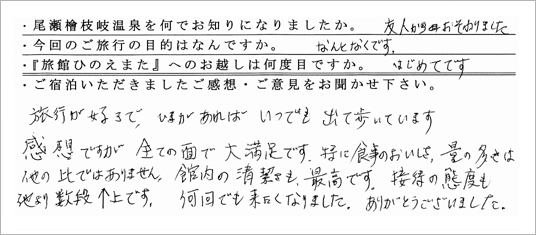 ・尾瀬檜枝岐温泉を何でお知りになりましたか。 友人からおそわりました
・今回のご旅行の目的はなんですか。 なんとなくです。
・『旅館ひのえまた』へのお越しは何度目ですか。 はじめてです
・ご宿泊いただきましたご感想・ご意見をお聞かせ下さい。
旅行が好きで、ひまがあれば いつでも 出て歩いています
感想ですが 全ての面で 大満足です。特に食事のおいしさ、量の多さは
他の比ではありません。館内の清潔さも、最高です。接待の態度も
他より数段↑上です。 何回でも来たくなりました。ありがとうございました。